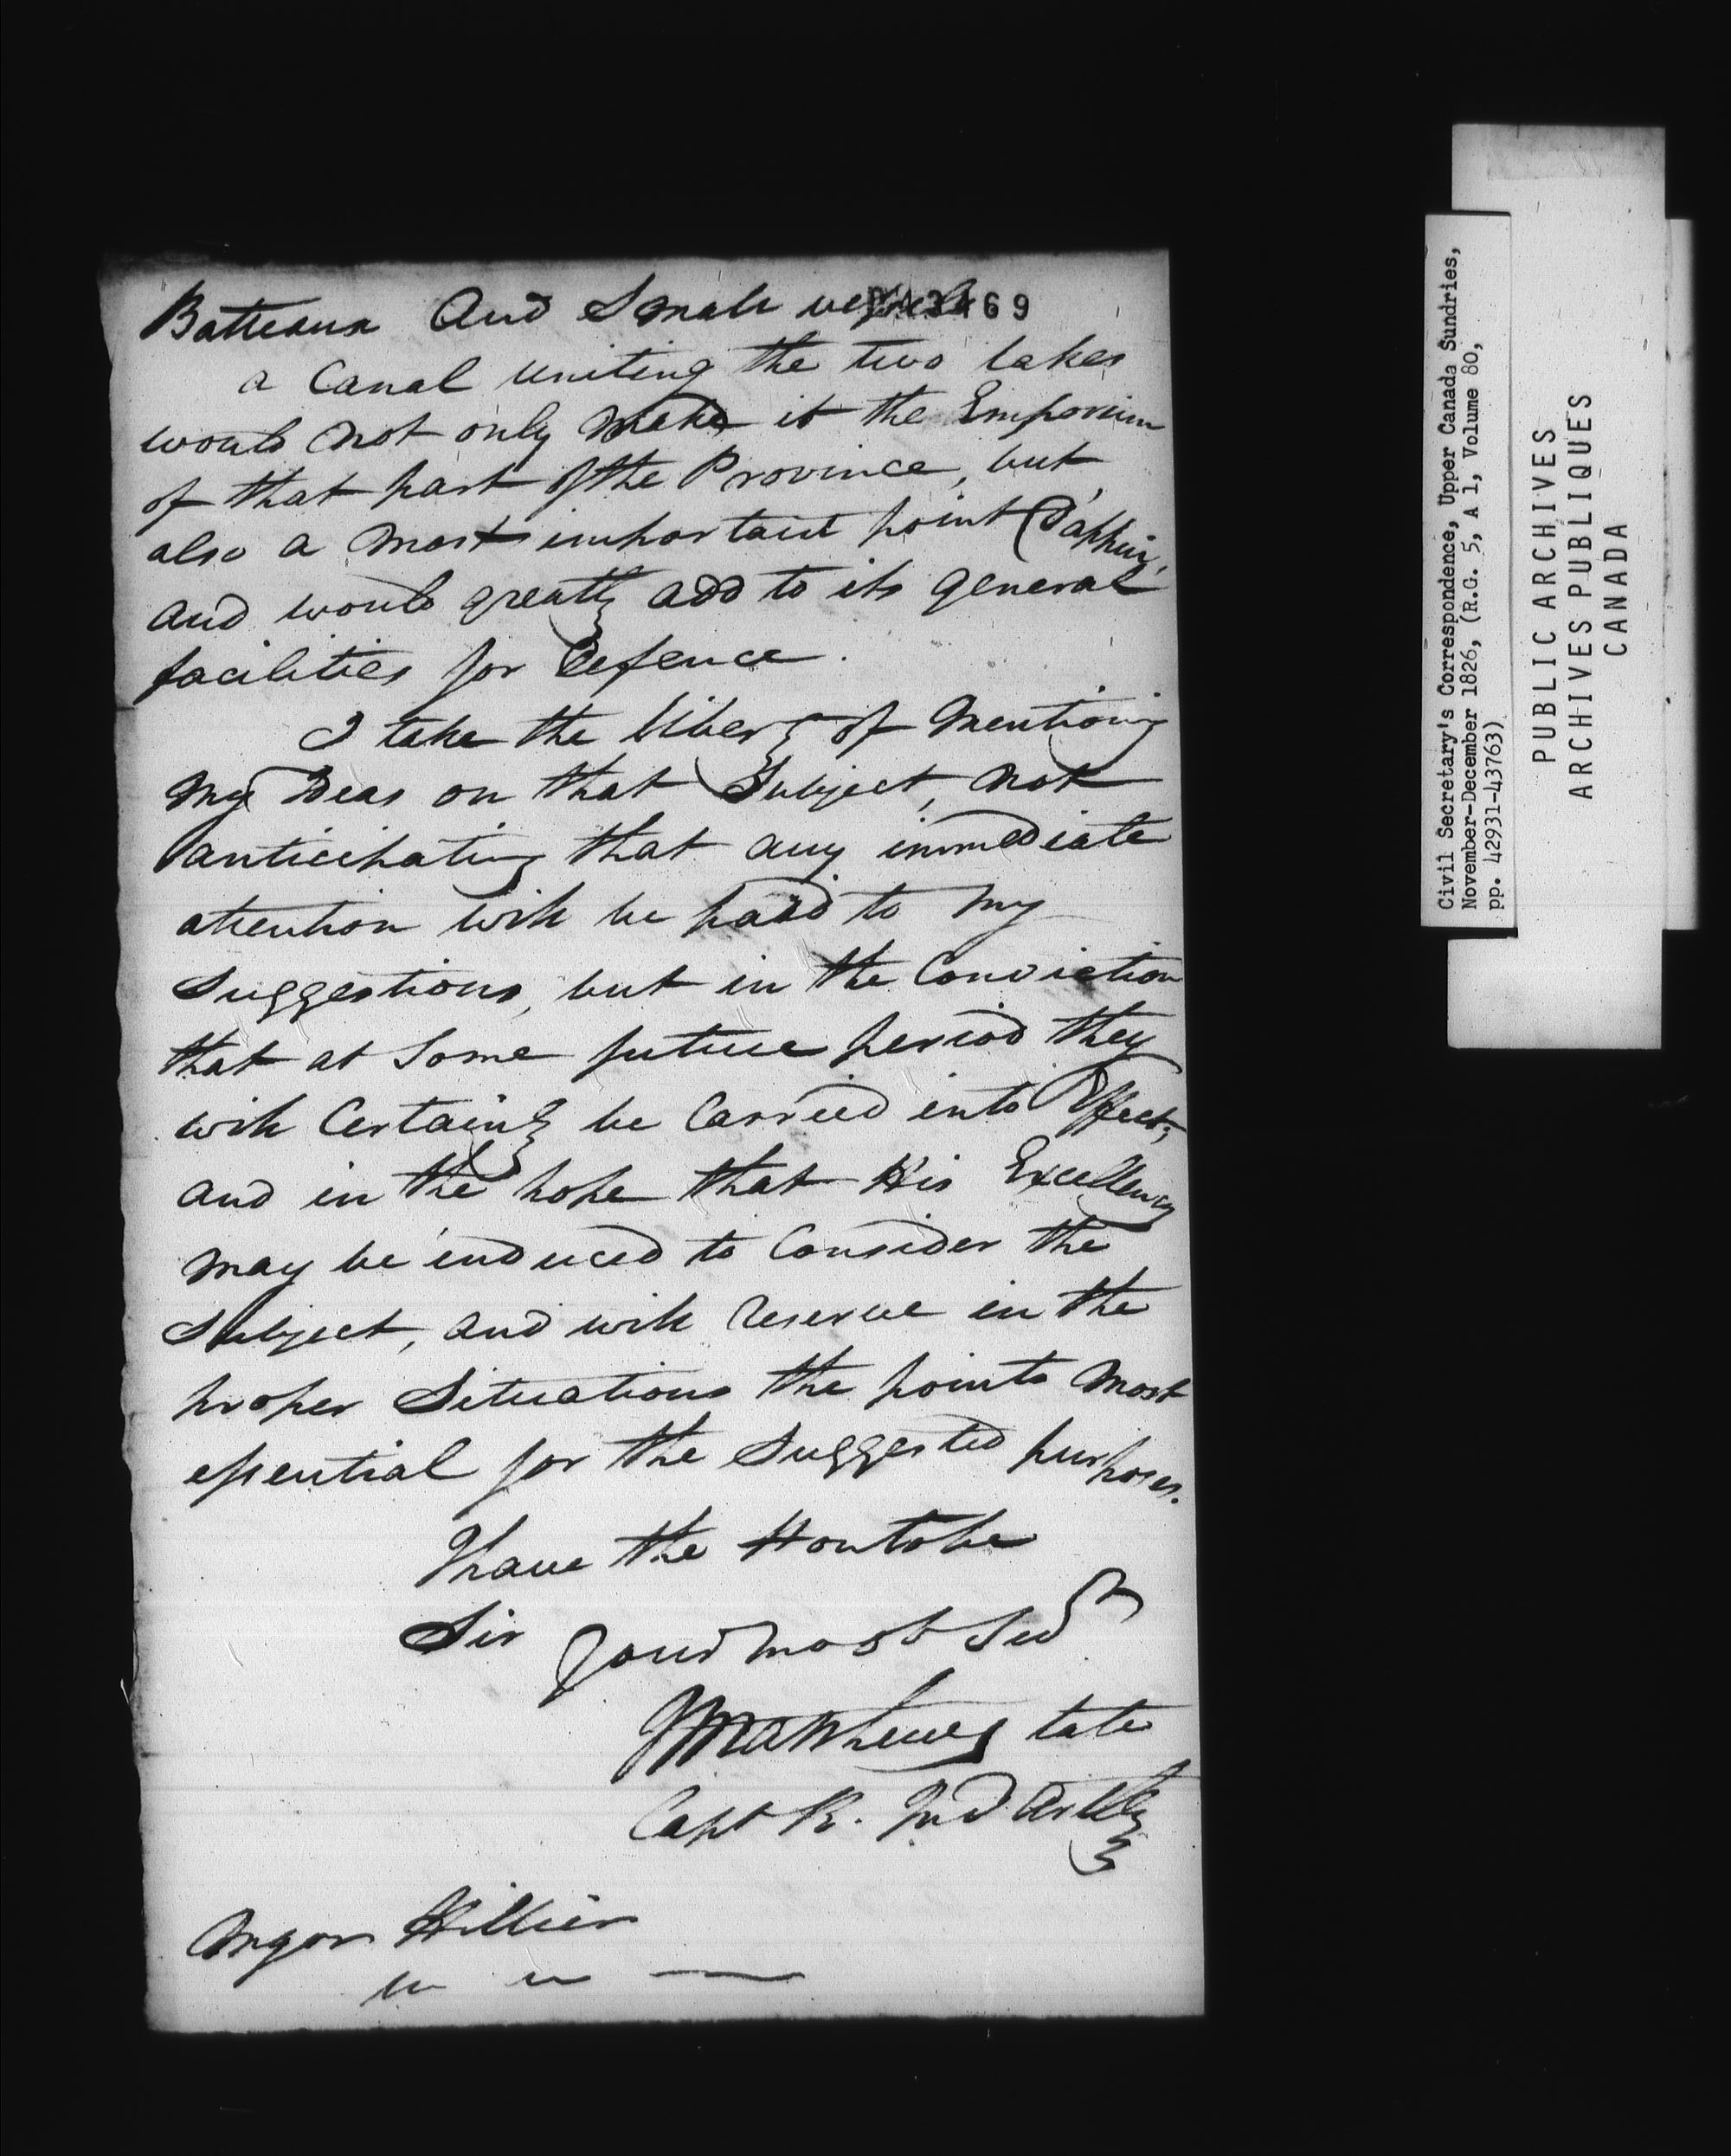 Batteaux And Small vessels
43469
a Canal uniting the two lakes
would not only make it the Emporium
of that part of the Province, but
also a most important point D'appui,
and would greatly add to its general
facilities for Defence.
I take the liberty of Mentioning
my Ideas on that Subject, not
anticipating that any immediate
attention will be paid to my
Suggestions, but in the Conviction
that at Some future period they
will Certainly be Carried into Effect;
and in the hope that His Excellency
may be induced to Consider the
Subject, and will reserve in the
proper Situations the points most
essential for the Suggested purposes.
I have the Hon to be
Sir Your most Sevt
JMatthews late
Capt R. Ind Artilly
Major Hillier
Civil Secretary's Correspondence, Upper Canada Sundries,
November-December 1826, (R.G. 5, A 1, Volume 80,
pp. 42931-43763)
PUBLIC ARCHIVES
ARCHIVES PUBLIQUES
CANADA